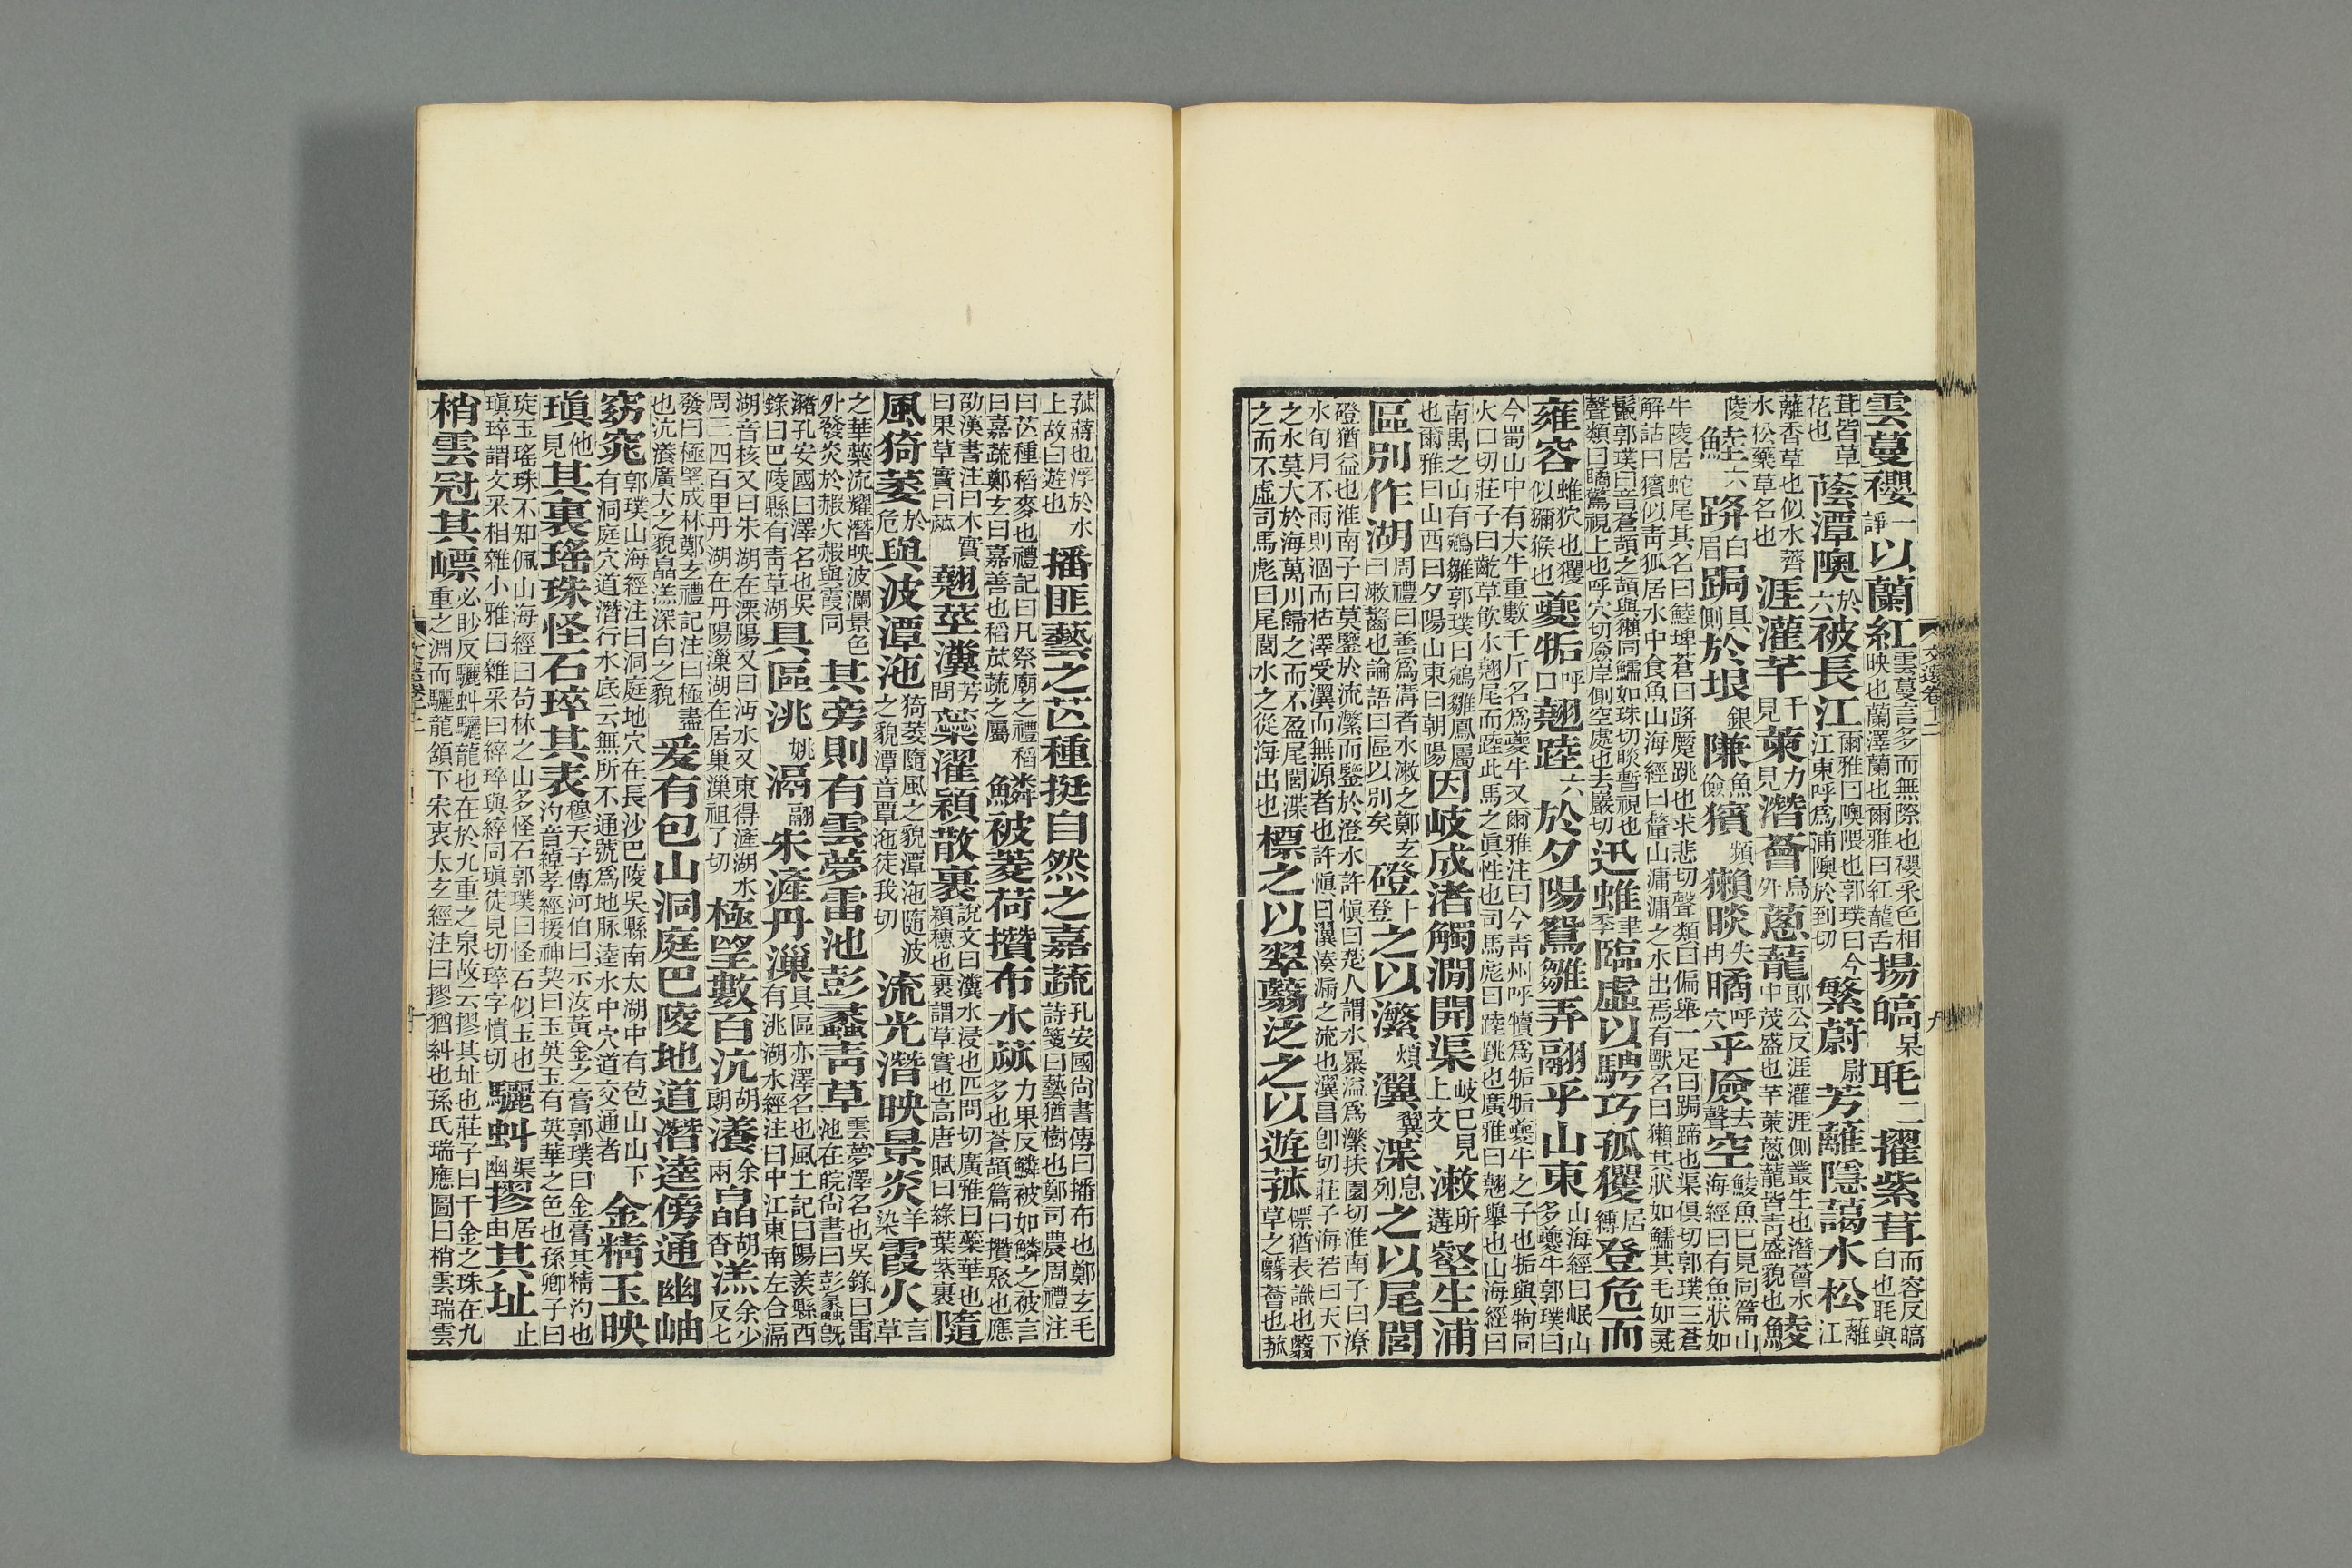 雲蔓䙬一諍以蘭紅雲蔓言多而無際也䙬采色相映也蘭澤蘭也爾雅曰紅蘢舌揚皜杲毦二擢紫茸而容反皜白也毦與
茸皆草花也蔭潭隩於六被長江爾雅曰隩隈也郭璞曰今江東呼爲浦隩於到切繁蔚尉芳蘺隱藹水松蘺江
離香草也似水薺水松藥草名也涯灌芊千見萰力見潛薈烏外葱蘢郎公反涯灌涯側叢生也潛薈水中茂盛也芊萰葱蘢皆青盛貌也鯪
陵鯥六䟣白眉跼具側於垠銀隒魚儉獱頻獺睒失冉瞲呼穴乎厱去聲空鯪魚已見同篇山海經曰有魚狀如
牛陵居蛇尾其名曰鯥埤蒼曰䟣蹷跳也求悲切聲類曰偏舉一足曰跼蹄也渠俱切郭璞三蒼解詁曰獱似青狐居水中食魚山海經曰釐山滽滽之水出焉有獸名曰獺其狀如鱬其毛如彘
鬛郭璞曰音蒼頡之頡與獺同鱬如珠切睒暫視也聲類曰瞲驚視上也呼穴切厱岸側空處也去嚴切迅蜼聿季臨虛以騁巧孤玃居縛登危而
雍容蜼狖也玃似獼猴也夔㸸呼口翹踛六於夕陽鴛雛弄翮乎山東山海經曰岷山多夔牛郭璞曰
今蜀山中有大牛重數千斤名爲夔牛又爾雅注曰今青州呼犢爲㸸㸸夔牛之子也㸸與㹦同火口切莊子曰齕草飲水翹尾而踛此馬之眞性也司馬彪曰踛跳也廣雅曰翹舉也山海經曰
南禺之山有鵷雛郭璞曰鵷雛鳳屬也爾雅曰山西曰夕陽山東曰朝陽因岐成渚觸澗開渠岐已見上文漱所溝壑生浦
區別作湖周禮曰善爲溝者水漱之鄭玄曰漱齧也論語曰區以別矣磴十登之以瀿煩瀷翼渫息列之以尾閭
磴猶益也淮南子曰莫鑒於流瀿而鑒於澄水許愼曰楚人謂水暴溢爲瀿扶園切淮南子曰潦水旬月不雨則涸而枯澤受瀷而無源者也許愼曰瀷湊漏之流也瀷昌卽切莊子海若曰天下
之水莫大於海萬川歸之而不盈尾閭渫之而不虛司馬彪曰尾閭水之從海出也標之以翠蘙泛之以遊菰標猶表識也蘙草之蘙薈也菰
菰蔣也浮於水上故曰遊也播匪藝之芒種挺自然之嘉蔬孔安國尚書傳曰播布也鄭玄毛詩箋曰藝猶樹也鄭司農周禮注
曰芒種稻麥也禮記曰凡祭廟之禮稻曰嘉蔬鄭玄曰嘉善也稻苽蔬之屬鱗被菱荷攢布水蓏力果反鱗被如鱗之被言多也蒼頡篇曰攢聚也應
劭漢書注曰木實曰果草實曰蓏翹莖瀵芳問蘂濯穎散裹說文曰瀵水浸也匹問切廣雅曰蘂華也穎穗也裹謂草實也高唐賦曰綠葉紫裹隨
風猗萎於危與波潭沲猗萎隨風之貌潭沲隨波之貌潭音覃沲徒我切流光潛映景炎羊染霞火言草
之華蘂流耀潛映波瀾景色外發炎於赮火赮與霞同其旁則有雲夢雷池彭蠡青草雲夢澤名也吳錄曰雷池在皖尚書曰彭蠡旣
瀦孔安國曰澤名也吳錄曰巴陵縣有青草湖具區洮姚滆翮朱滻丹漅具區亦澤名也風土記曰陽羨縣西有洮湖水經注曰中江東南左合滆
湖音核又曰朱湖在溧陽又曰沔水又東得滻湖水周三四百里丹湖在丹陽漅湖在居巢漅祖了切極望數百沆胡朗瀁余兩皛胡杳溔余少反七
發曰極望成林鄭玄禮記注曰極盡也沆瀁廣大之貌皛溔深白之貌爰有包山洞庭巴陵地道潛逵傍通幽岫
窈窕郭璞山海經注曰洞庭地穴在長沙巴陵吳縣南太湖中有苞山山下有洞庭穴道潛行水底云無所不通號爲地脉逵水中穴道交通者金精玉映
瑱他見其裏瑤珠怪石琗其表穆天子傳河伯曰示汝黃金之膏郭璞曰金膏其精汋也汋音綽孝經援神契曰玉英玉有英華之色也孫卿子曰
琁玉瑤珠不知佩山海經曰苟林之山多怪石郭璞曰怪石似玉也瑱琗謂文采相雜小雅曰雜采曰綷琗與綷同瑱徒見切琗字慣切驪虯渠幽摎居由其址止
梢雲冠其㟽必眇反驪虯驪龍也在於九重之泉故云摎其址也莊子曰千金之珠在九重之淵而驪龍頷下宋衷太玄經注曰摎猶糾也孫氏瑞應圖曰梢雲瑞雲
文選卷十二
九